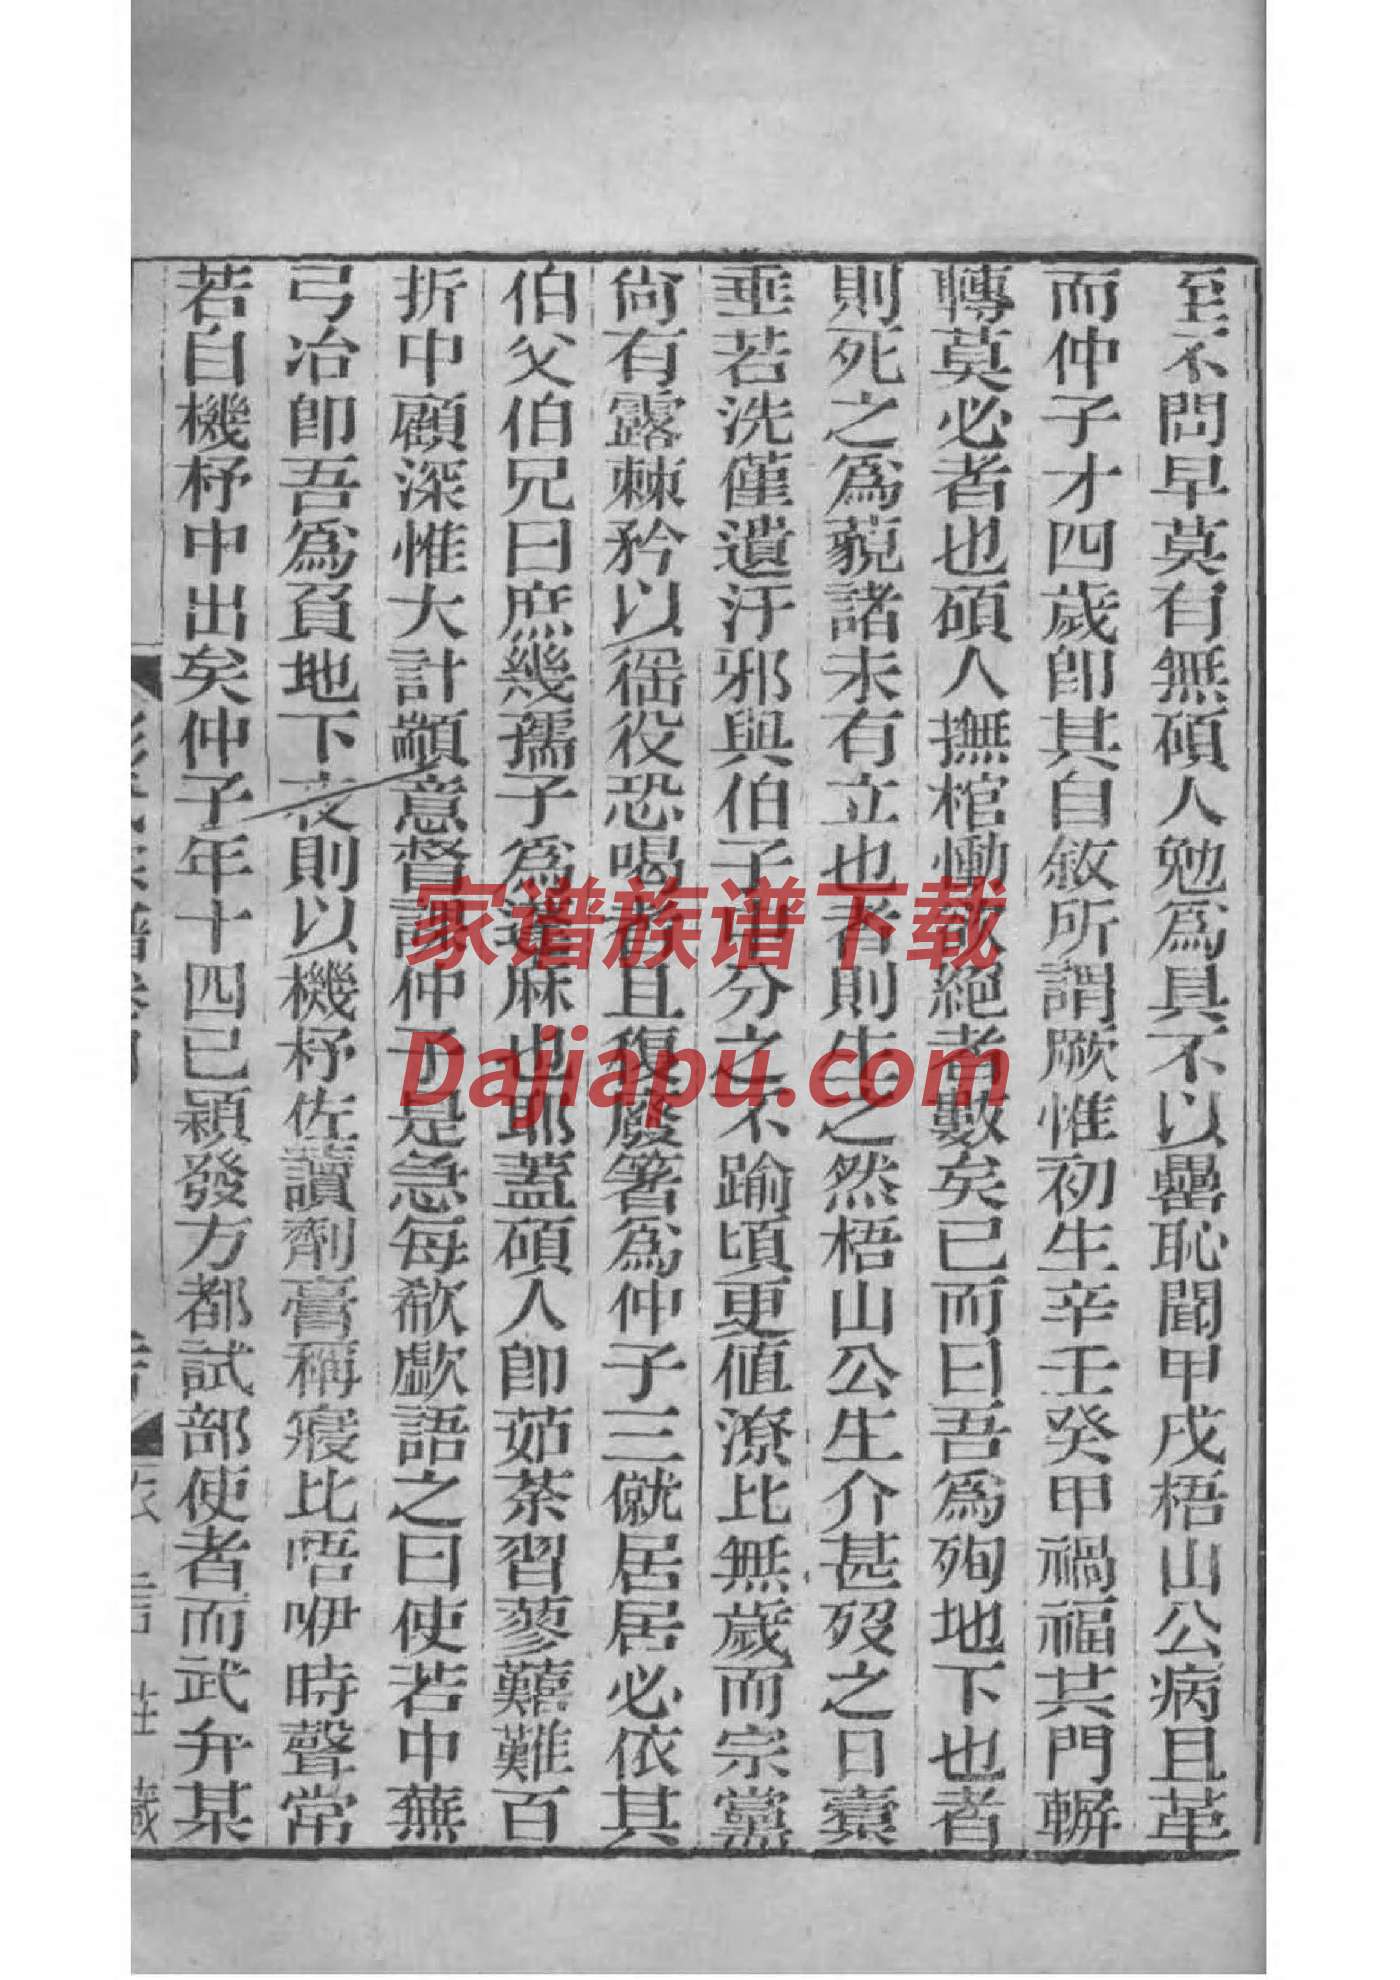 至不問早莫有無碩人勉為具不以罍恥聞甲戌梧山公病且革
而仲子才四歲卽其自敘所謂厥惟初生辛壬癸甲禍福共門輧
轉莫必者也碩人撫棺慟欲絕者數矣已而曰吾為殉地下也者
則死之為藐諸未有立也者則生之然梧山公生介甚歿之日橐
垂若洗僅遺汙邪與伯子中分之不踰頃更值潦比無歲而宗黨
尙有露棘矜以徭役恐喝者且復廢箸為仲子三僦居居必依其
伯父伯兄曰庶幾孺子為蓬麻也耶蓋碩人卽茹荼習蓼囏難百
折中顧深惟大計顓意督課仲子是急每欷歔語之曰使若中蕪
弓冶卽吾為負地下夜則以機杼佐讀劑膏稱寢比唔咿時聲常
若自機杼中出矣仲子年十四已穎發方都試部使者而武弁某
家谱族谱下载
Dajiapu.com